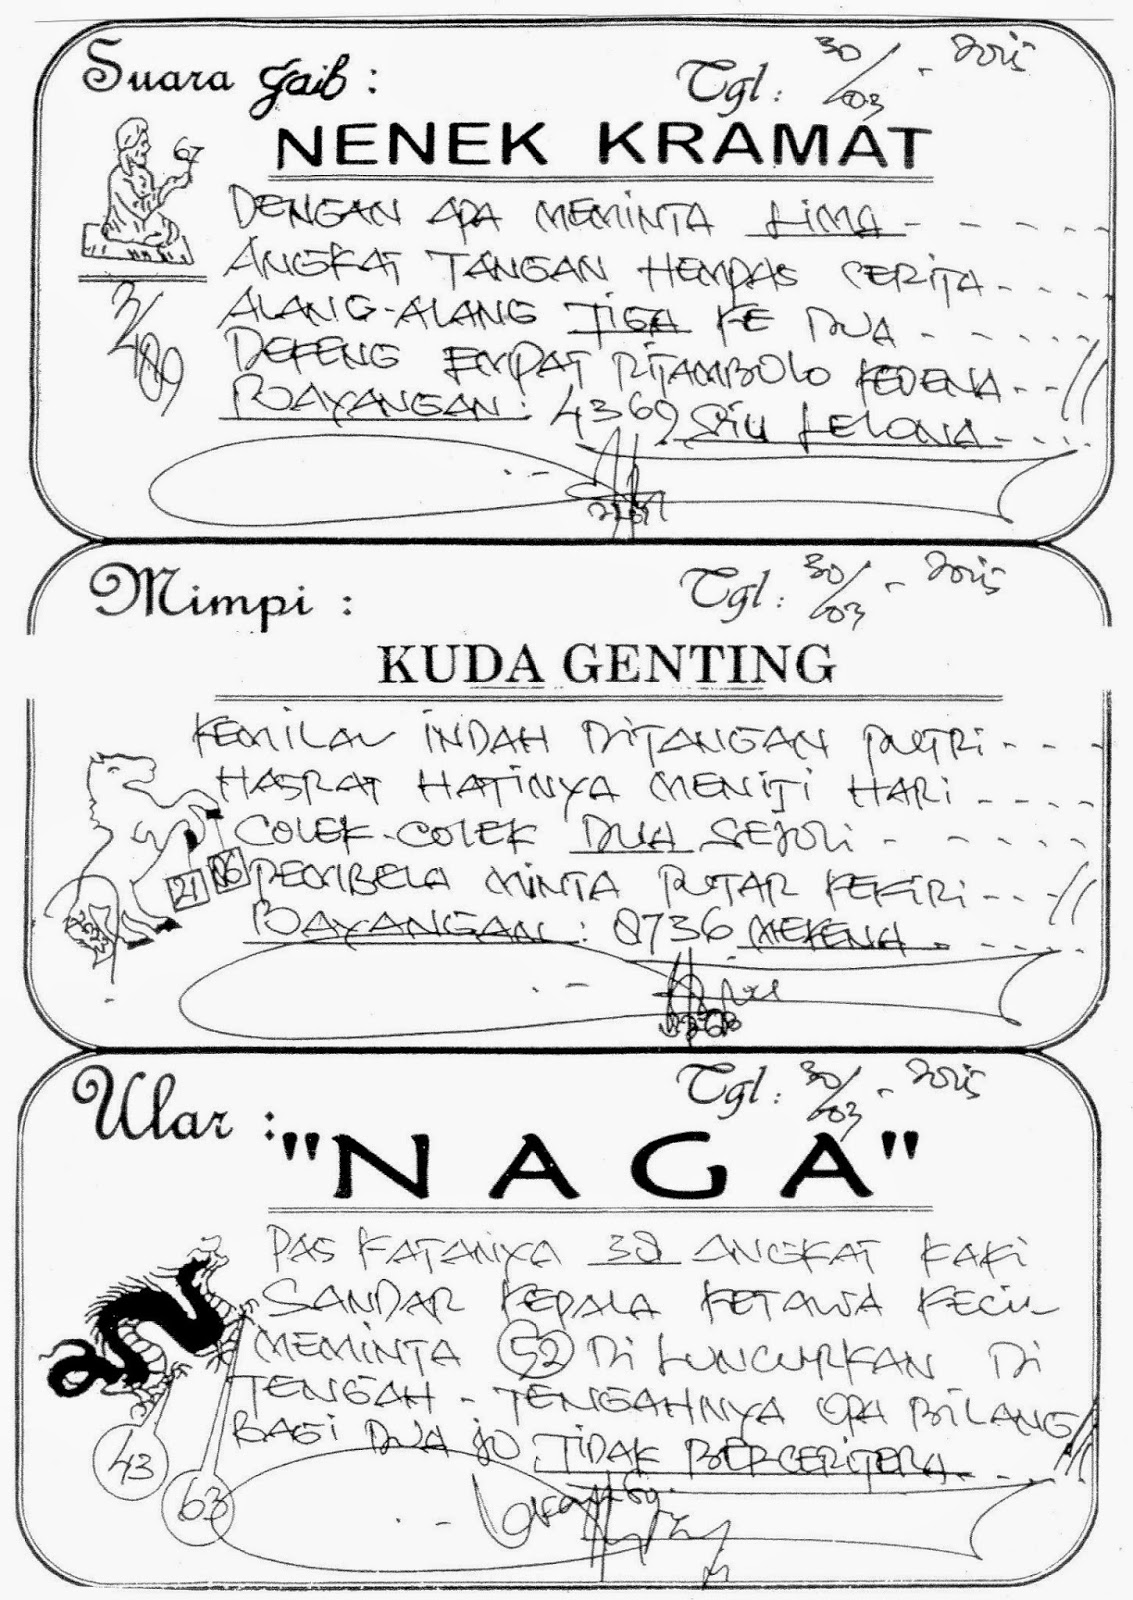 Suara Gaib :
Tgl : 30/03 - 2015
NENEK KRAMAT
67
DENGAN APA MEMINTA LIMA - - - - -
ANGKAT TANGAN HEMPAS CERITA - - - -
ALANG-ALANG TIGA KE DUA - - - - -
DEFENG EMPAT DITAMBOLO KEDENA - - //
BAYANGAN : 4369 LELONA - - - -
Mimpi :
Tgl : 30/03 - 2015
KUDA GENTING
KEMILAU INDAH DITANGAN PUTRI - - - -
HASRAT HATINYA MENITI HARI - - - -
COLEK-COLEK DUA SEJOLI - - - - -
21 06
PEMBELA MINTA PUTAR KEKIRI - - - //
BAYANGAN : 8736 MEKENA - - - -
Ular :
Tgl : 30/03 - 2015
"NAGA"
PAS KATANYA ANGKAT KAKI
SANDAR KEPALA KETAWA KECIL
MEMINTA 52 DI LUNCURKAN DI
TENGAH - TENGAHNYA OPA BILANG
BAGI DUA JO TIDAK BERCERITERA - - - -
43
63